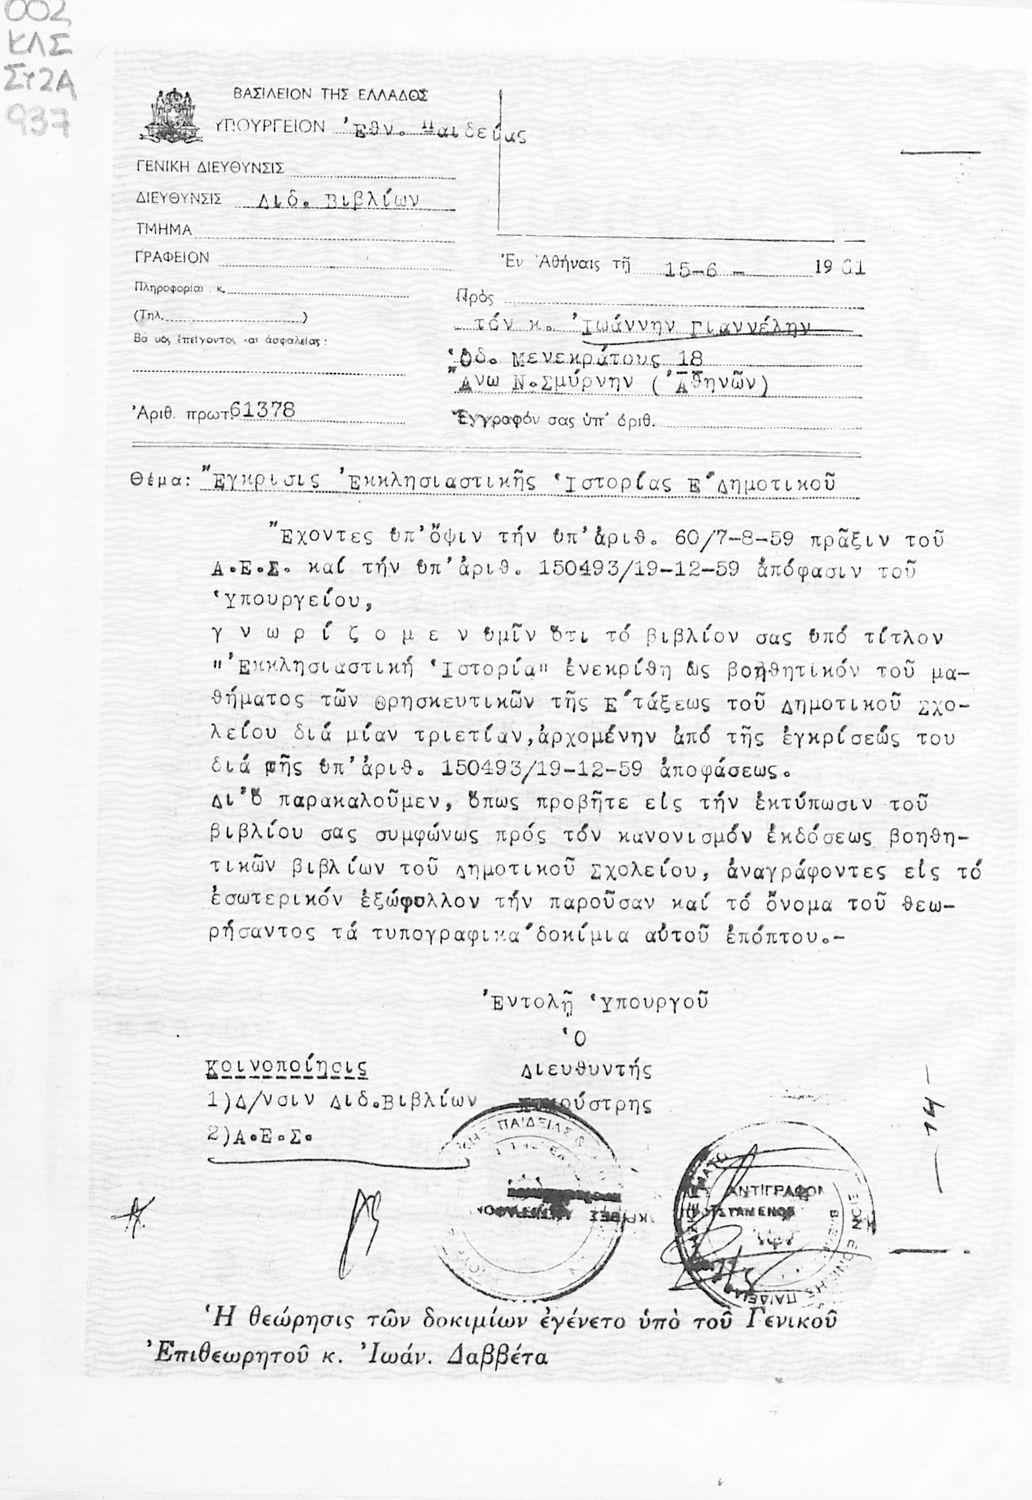 002
ΚΛΣ
ΣΥ2Α
937
ΒΑΣΙΛΕΙΟΝ ΤΗΣ ΕΛΛΑΔΟΣ
ΥΠΟΥΡΓΕΙΟΝ Ἐθν. Παιδείας
ΓΕΝΙΚΗ ΔΙΕΥΘΥΝΣΙΣ
ΔΙΕΥΘΥΝΣΙΣ Διδ. Βιβλίων
ΤΜΗΜΑ
ΓΡΑΦΕΙΟΝ
Πληροφορίαι: κ.
(Τηλ. )
Ἐν Ἀθήναις τῇ 15-6- 1961
Πρὸς
τόν κ. Ἰωάννην Γιαννέλην
Ὁδ. Μενεκράτους 18
Ἄνω Ν.Σμύρνην (Ἀθηνῶν)
Ἀριθ. πρωτ. 61378
Ἔγγραφόν σας ὑπ' ἀριθ.
Θέμα: Ἔγκρισις Ἐκκλησιαστικῆς Ἱστορίας Ε΄Δημοτικοῦ
Ἔχοντες ὑπ'ὄψιν τήν ὑπ'ἀριθ. 60/7-8-59 πρᾶξιν τοῦ
Α.Ε.Σ. καί τήν ὑπ'ἀριθ. 150493/19-12-59 ἀπόφασιν τοῦ
Ὑπουργείου,
γ ν ω ρ ί ζ ο μ ε ν ὑμῖν ὅτι τό βιβλίον σας ὑπό τίτλον
"Ἐκκλησιαστική Ἱστορία" ἐνεκρίθη ὡς βοηθητικόν τοῦ μα-
θήματος τῶν Θρησκευτικῶν τῆς Ε΄τάξεως τοῦ Δημοτικοῦ Σχο-
λείου διά μίαν τριετίαν,ἀρχομένην ἀπό τῆς ἐγκρίσεώς του
διά τῆς ὑπ'ἀριθ. 150493/19-12-59 ἀποφάσεως.
Δι'ὅ παρακαλοῦμεν, ὅπως προβῆτε εἰς τήν ἐκτύπωσιν τοῦ
βιβλίου σας συμφώνως πρός τόν κανονισμόν ἐκδόσεως βοηθη-
τικῶν βιβλίων τοῦ Δημοτικοῦ Σχολείου, ἀναγράφοντες εἰς τό
ἐσωτερικόν ἐξώφυλλον τήν παροῦσαν καί τό ὄνομα τοῦ θεω-
ρήσαντος τά τυπογραφικά δοκίμια αὐτοῦ ἐπόπτου.-
Ἐντολῇ Ὑπουργοῦ
Ὁ
Διευθυντής
Κοινοποίησις
1)Δ/νσιν Διδ.Βιβλίων
2)Α.Ε.Σ.
ΑΚΡΙΒΕΣ ΑΝΤΙΓΡΑΦΟΝ
ΑΝΤΙΓΡΑΦΟΝ
14
Ἡ θεώρησις τῶν δοκιμίων ἐγένετο ὑπὸ τοῦ Γενικοῦ
Ἐπιθεωρητοῦ κ. Ἰωάν. Δαββέτα